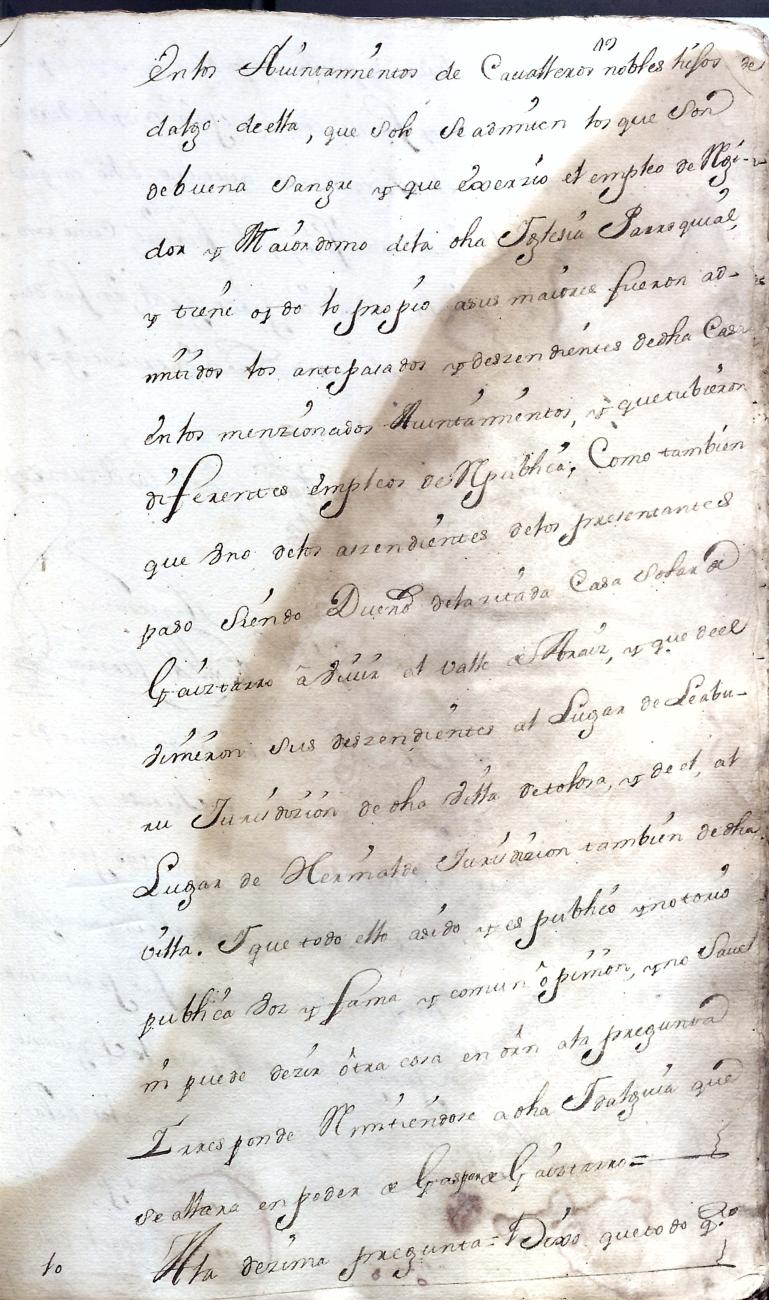 en los Aiuntamientos de Cavalleros nobles hijos de
dalgo de ella, que solo se admiten los que son
de buena sangre y que exerzio el empleo de Regi-
dor y Maiordomo de la dha Iglesia Parroquial,
y tiene oydo lo propio a sus maiores fueron ad-
mitidos los antepasados y deszendientes de dha Casa
en los menzionados Aiuntamientos, y que tubieron
diferentes empleos de Republica; Como tambien
que vno de los aszendientes de los presentantes
paso siendo Dueño de la zitada Casa Solar de
Gaiztarro â vivir al valle de Araiz, y q.e de el
vinieron sus deszendientes al Lugar de Leabu-
ru Jurisdizion de dha villa de tolosa, y de el, al
Lugar de Hernialde Jurisdizion tambien de dha
villa. I que todo ello asido y es publico y notorio
publica voz y fama y comun ôpinion, y no save
ni puede dezir ôtra cosa en ôrn ala pregunta
I rresponde Rimitiendose a dha Idalguia que
se allara en poder de Gaspar de Gaiztarro =
10 A la dezima pregunta = Dixo que todo q.to